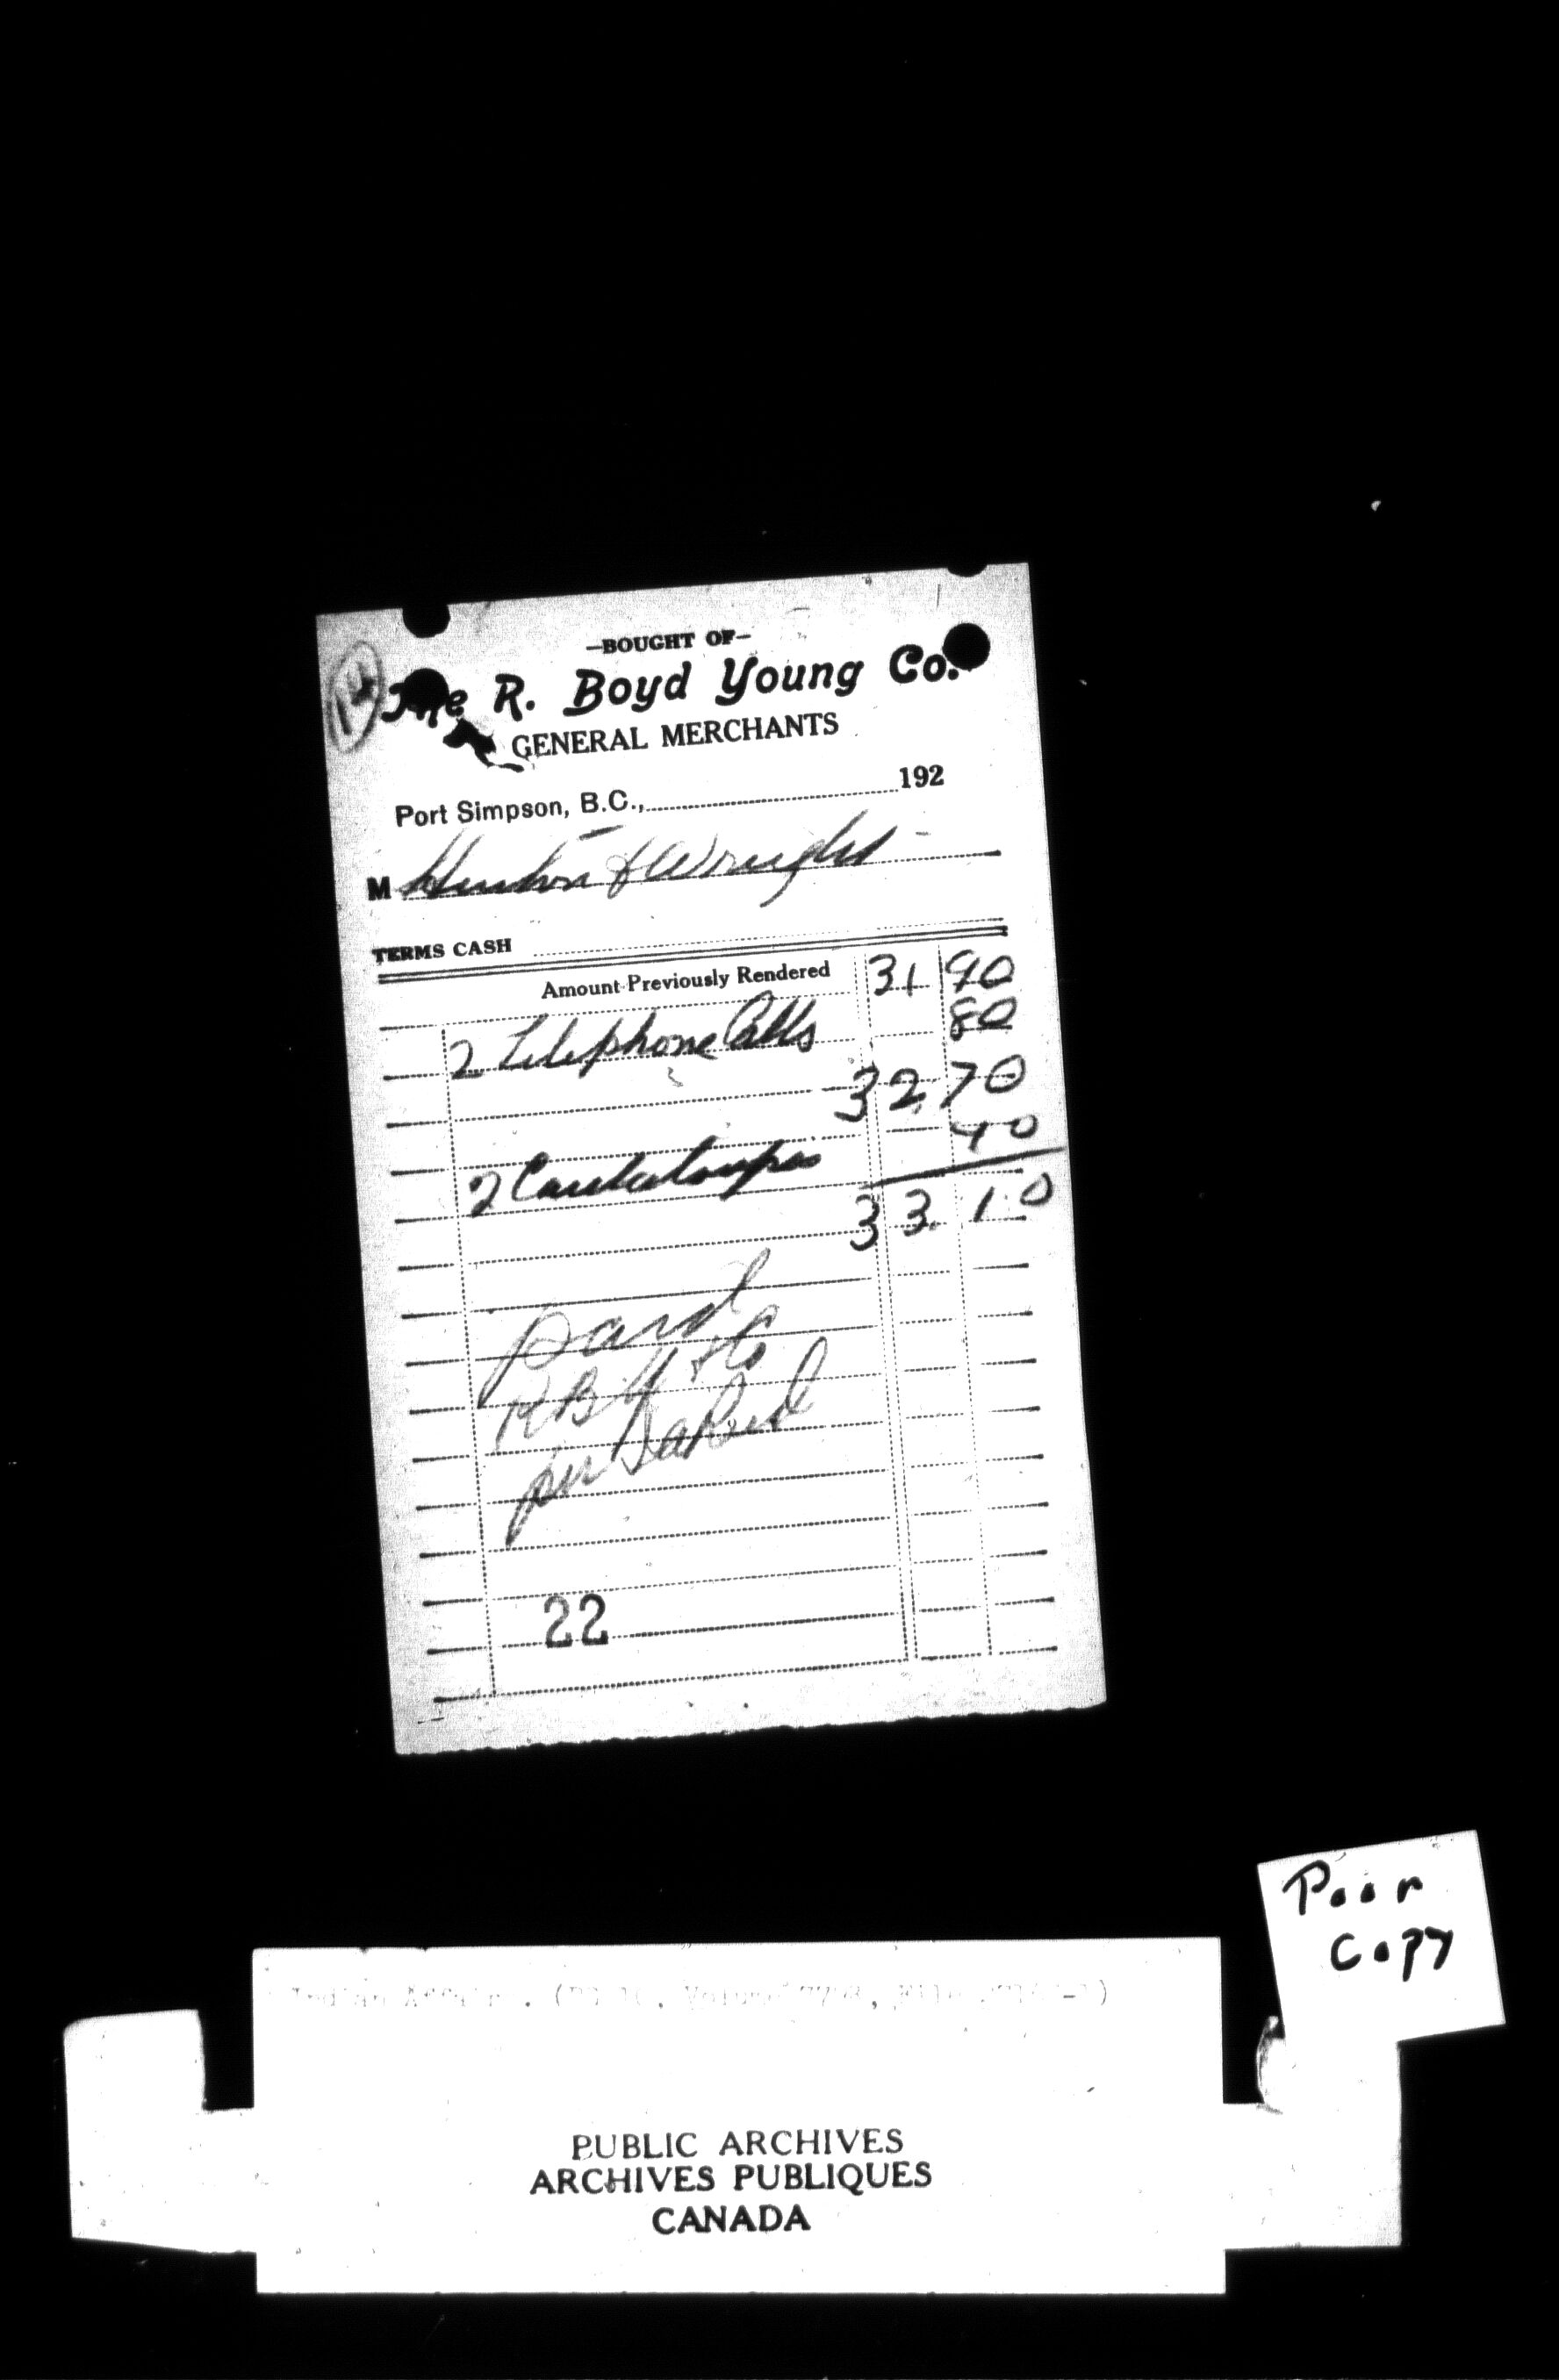 14
-BOUGHT OF-
The R. Boyd Young Co.
GENERAL MERCHANTS
Port Simpson, B.C., 192
M Hinton & Wright
TERMS CASH
Amount Previously Rendered 31 90
2 Telephone Calls 80
32.70
2 Cantaloupes 40
33.10
paid
RBY & Co
per
22
Poor
Copy
Indian Affairs. (RG 10, Volume
PUBLIC ARCHIVES
ARCHIVES PUBLIQUES
CANADA